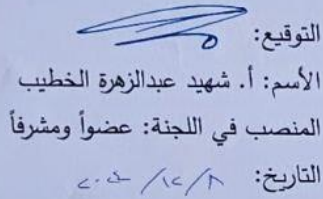 التوقيع:
الأسم: أ. شهيد عبدالزهرة الخطيب
المنصب في اللجنة: عضواً ومشرفاً
التاريخ: ٨ /١٢/ ٢٠٢٤